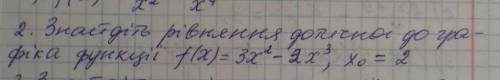 2. Знайдіть рівняння дотичної до гра-
фіка функції f(x) = 3x² - 2x³, x₀ = 2